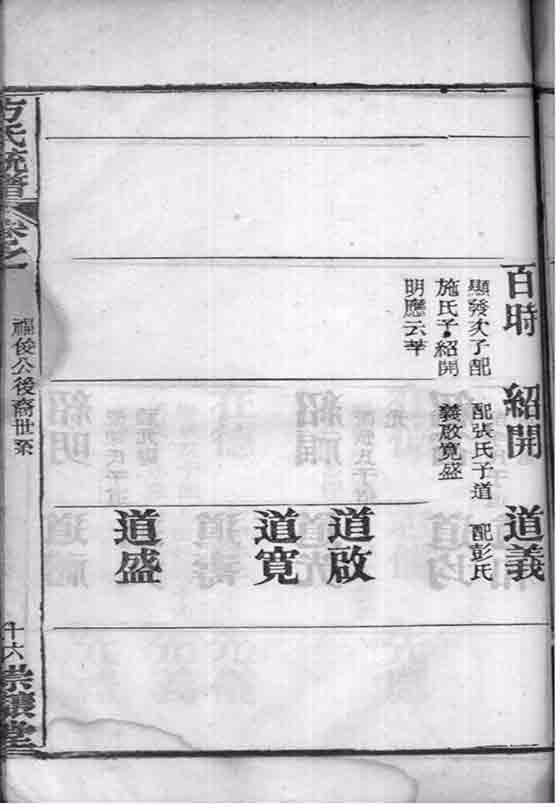 百時
顯發次子配
施氏子紹開
明應云苹
紹開
配張氏子道
義啟寬盛
道義
配彭氏
道啟
道寬
道盛
方氏統譜
卷之一
福俊公後裔世系
十六
崇讓堂